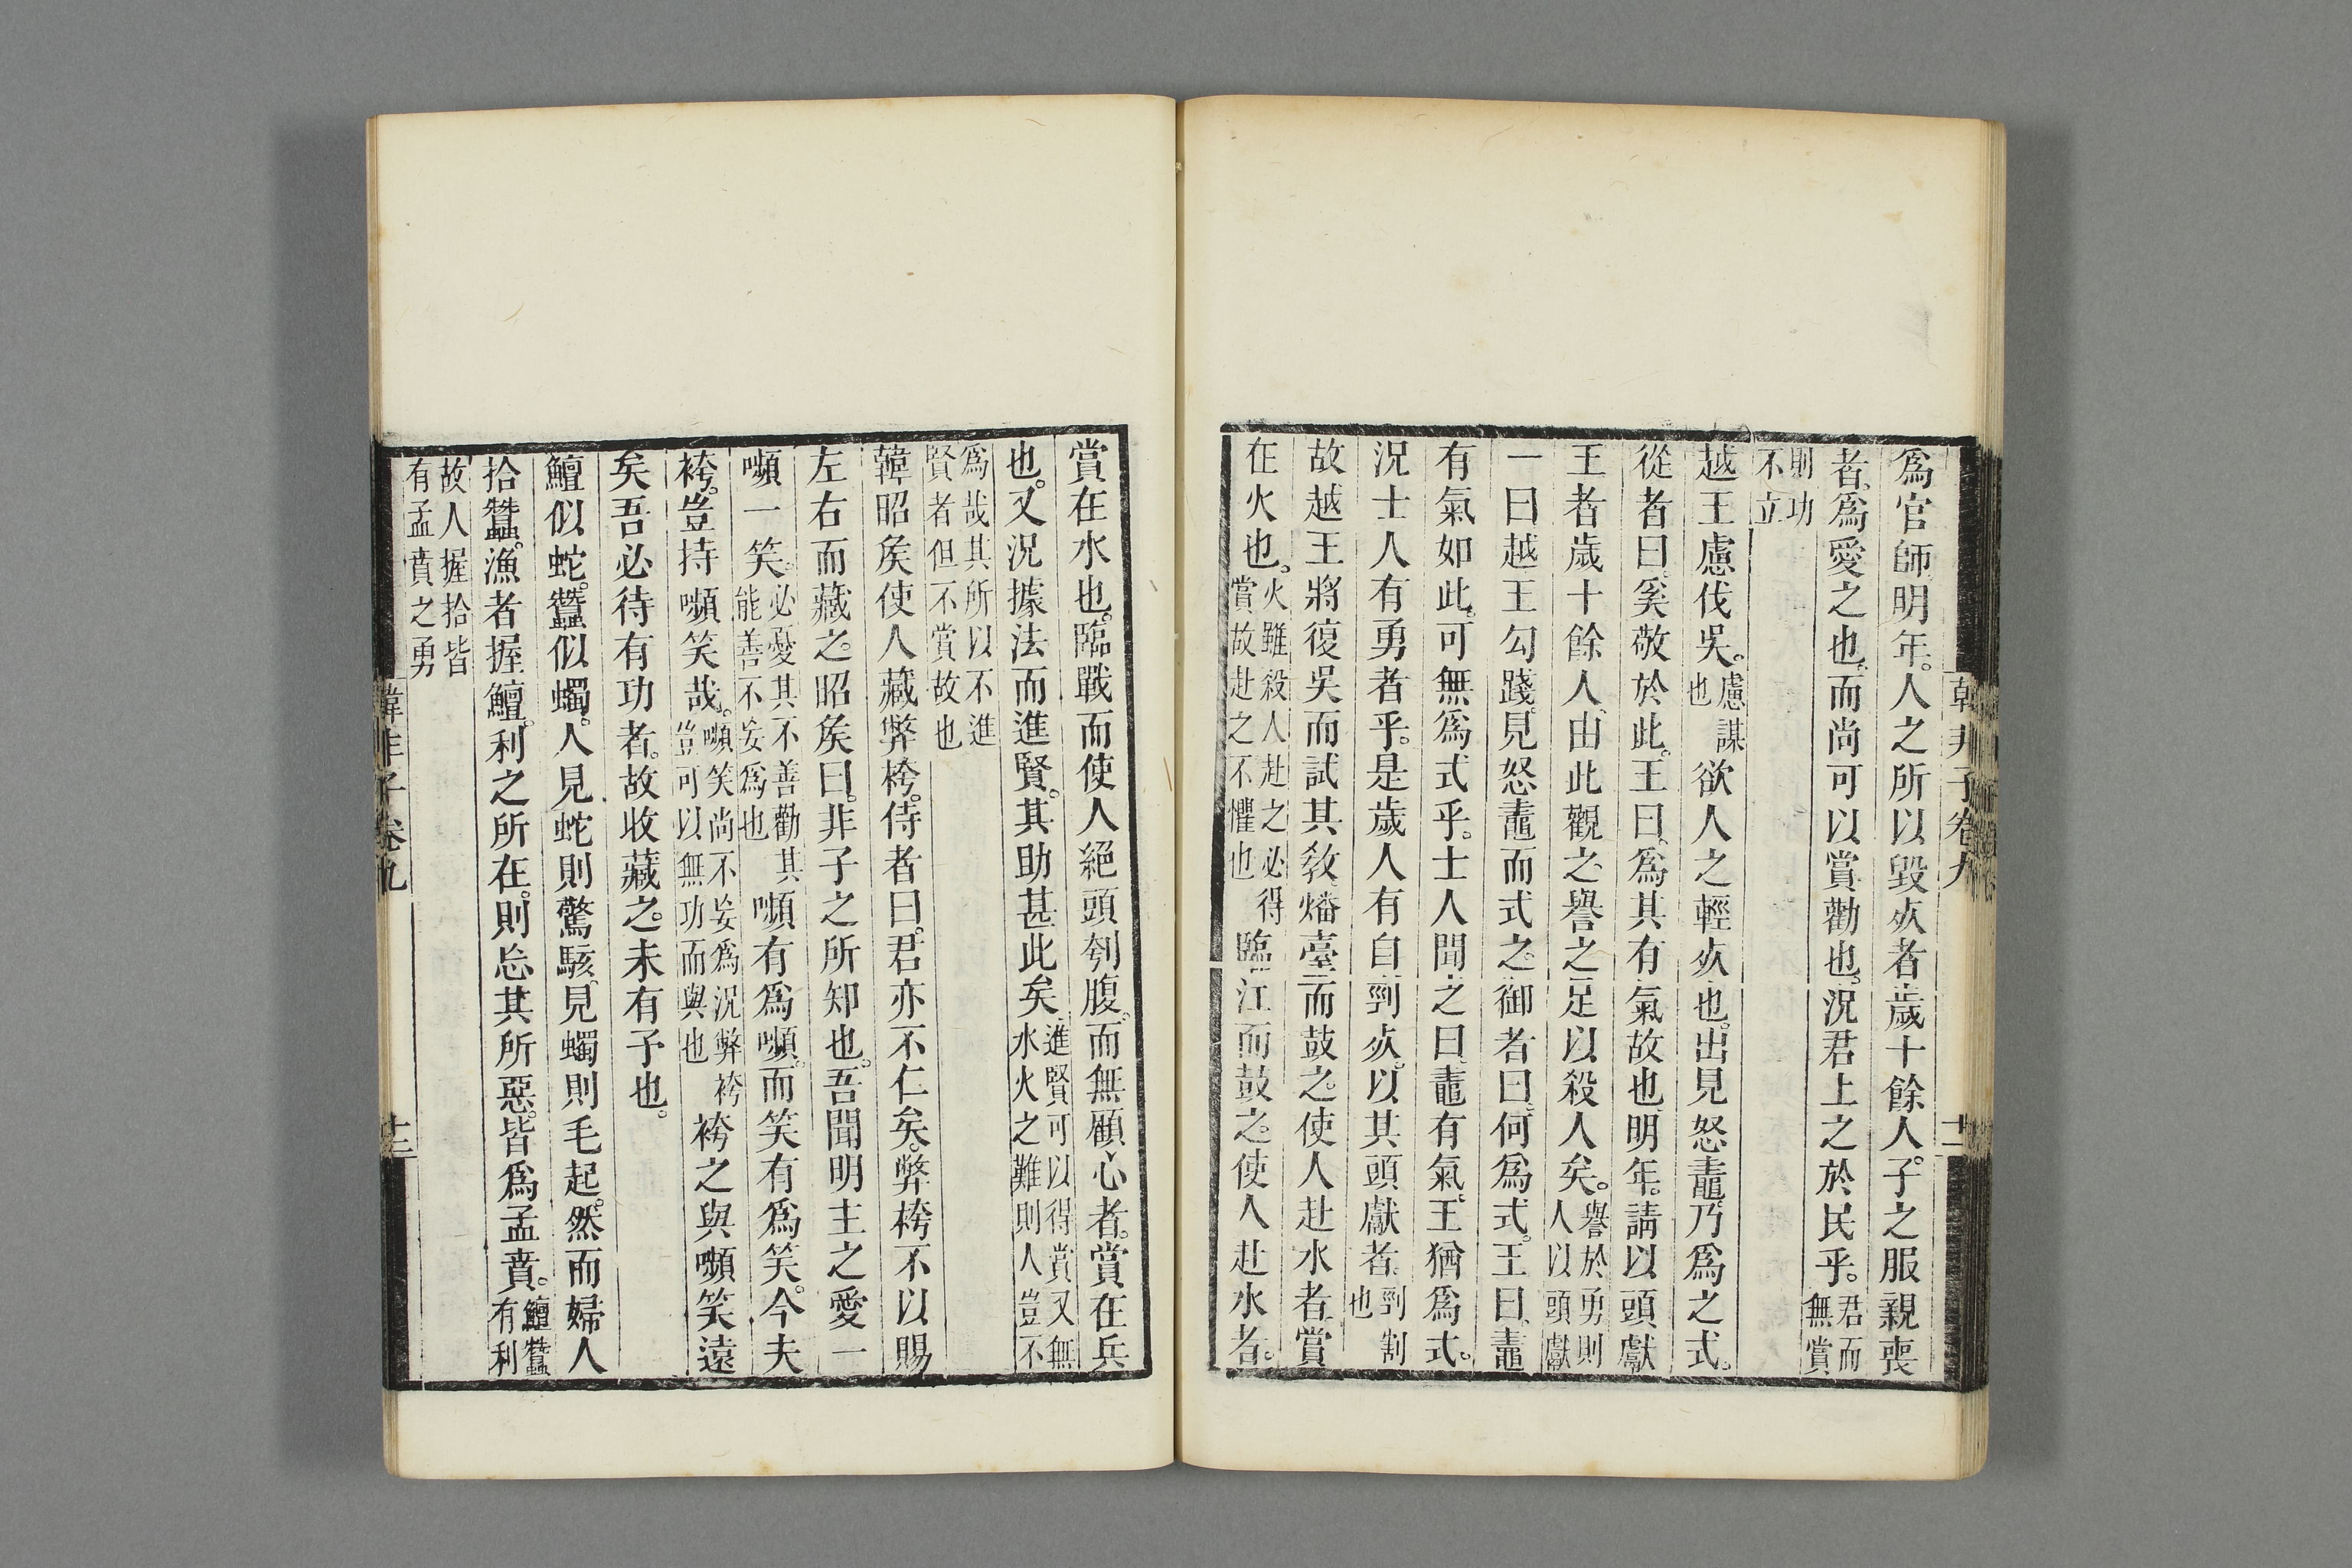 韓非子卷九
十二
爲官師明年。人之所以毀死者歲十餘人。子之服親喪
者。爲愛之也。而尚可以賞勸也。況君上之於民乎。君而無賞
則功不立
越王慮伐吳。慮謀也欲人之輕死也。出見怒鼃乃爲之式。
從者曰。奚敬於此。王曰。爲其有氣故也。明年。請以頭獻
王者歲十餘人。由此觀之譽之足以殺人矣。譽於勇則人以頭獻
一曰越王勾踐。見怒鼃而式之。御者曰。何爲式。王曰。鼃
有氣如此。可無爲式乎。士人聞之曰。鼃有氣。王猶爲式。
況士人有勇者乎。是歲人有自剄死。以其頭獻者。剄割也
故越王將復吳而試其敎。燔臺而鼓之。使人赴水者。賞
在火也。火雖殺人赴之必得賞故赴之不懼也臨江而鼓之。使人赴水者。
賞在水也。臨戰而使人絕頭刳腹。而無顧心者。賞在兵
也。又況據法而進賢。其助甚此矣。進賢可以得賞又無水火之難則人豈不
爲哉其所以不進賢者但不賞故也
韓昭矦使人藏弊袴。侍者曰。君亦不仁矣。弊袴不以賜
左右而藏之。昭矦曰。非子之所知也。吾聞明主之愛一
嚬一笑。必憂其不善勸其能善不妄爲也嚬有爲嚬。而笑有爲笑。今夫
袴。豈持嚬笑哉。嚬笑尚不妄爲況弊袴豈可以無功而與也袴之與嚬笑遠
矣吾必待有功者。故收藏之。未有予也。
鱣似蛇。蠶似蠋。人見蛇則驚駭。見蠋則毛起。然而婦人
拾蠶。漁者握鱣。利之所在。則忘其所惡。皆爲孟賁。鱣蠶有利
故人握拾皆有孟賁之勇
韓非子卷九
十三